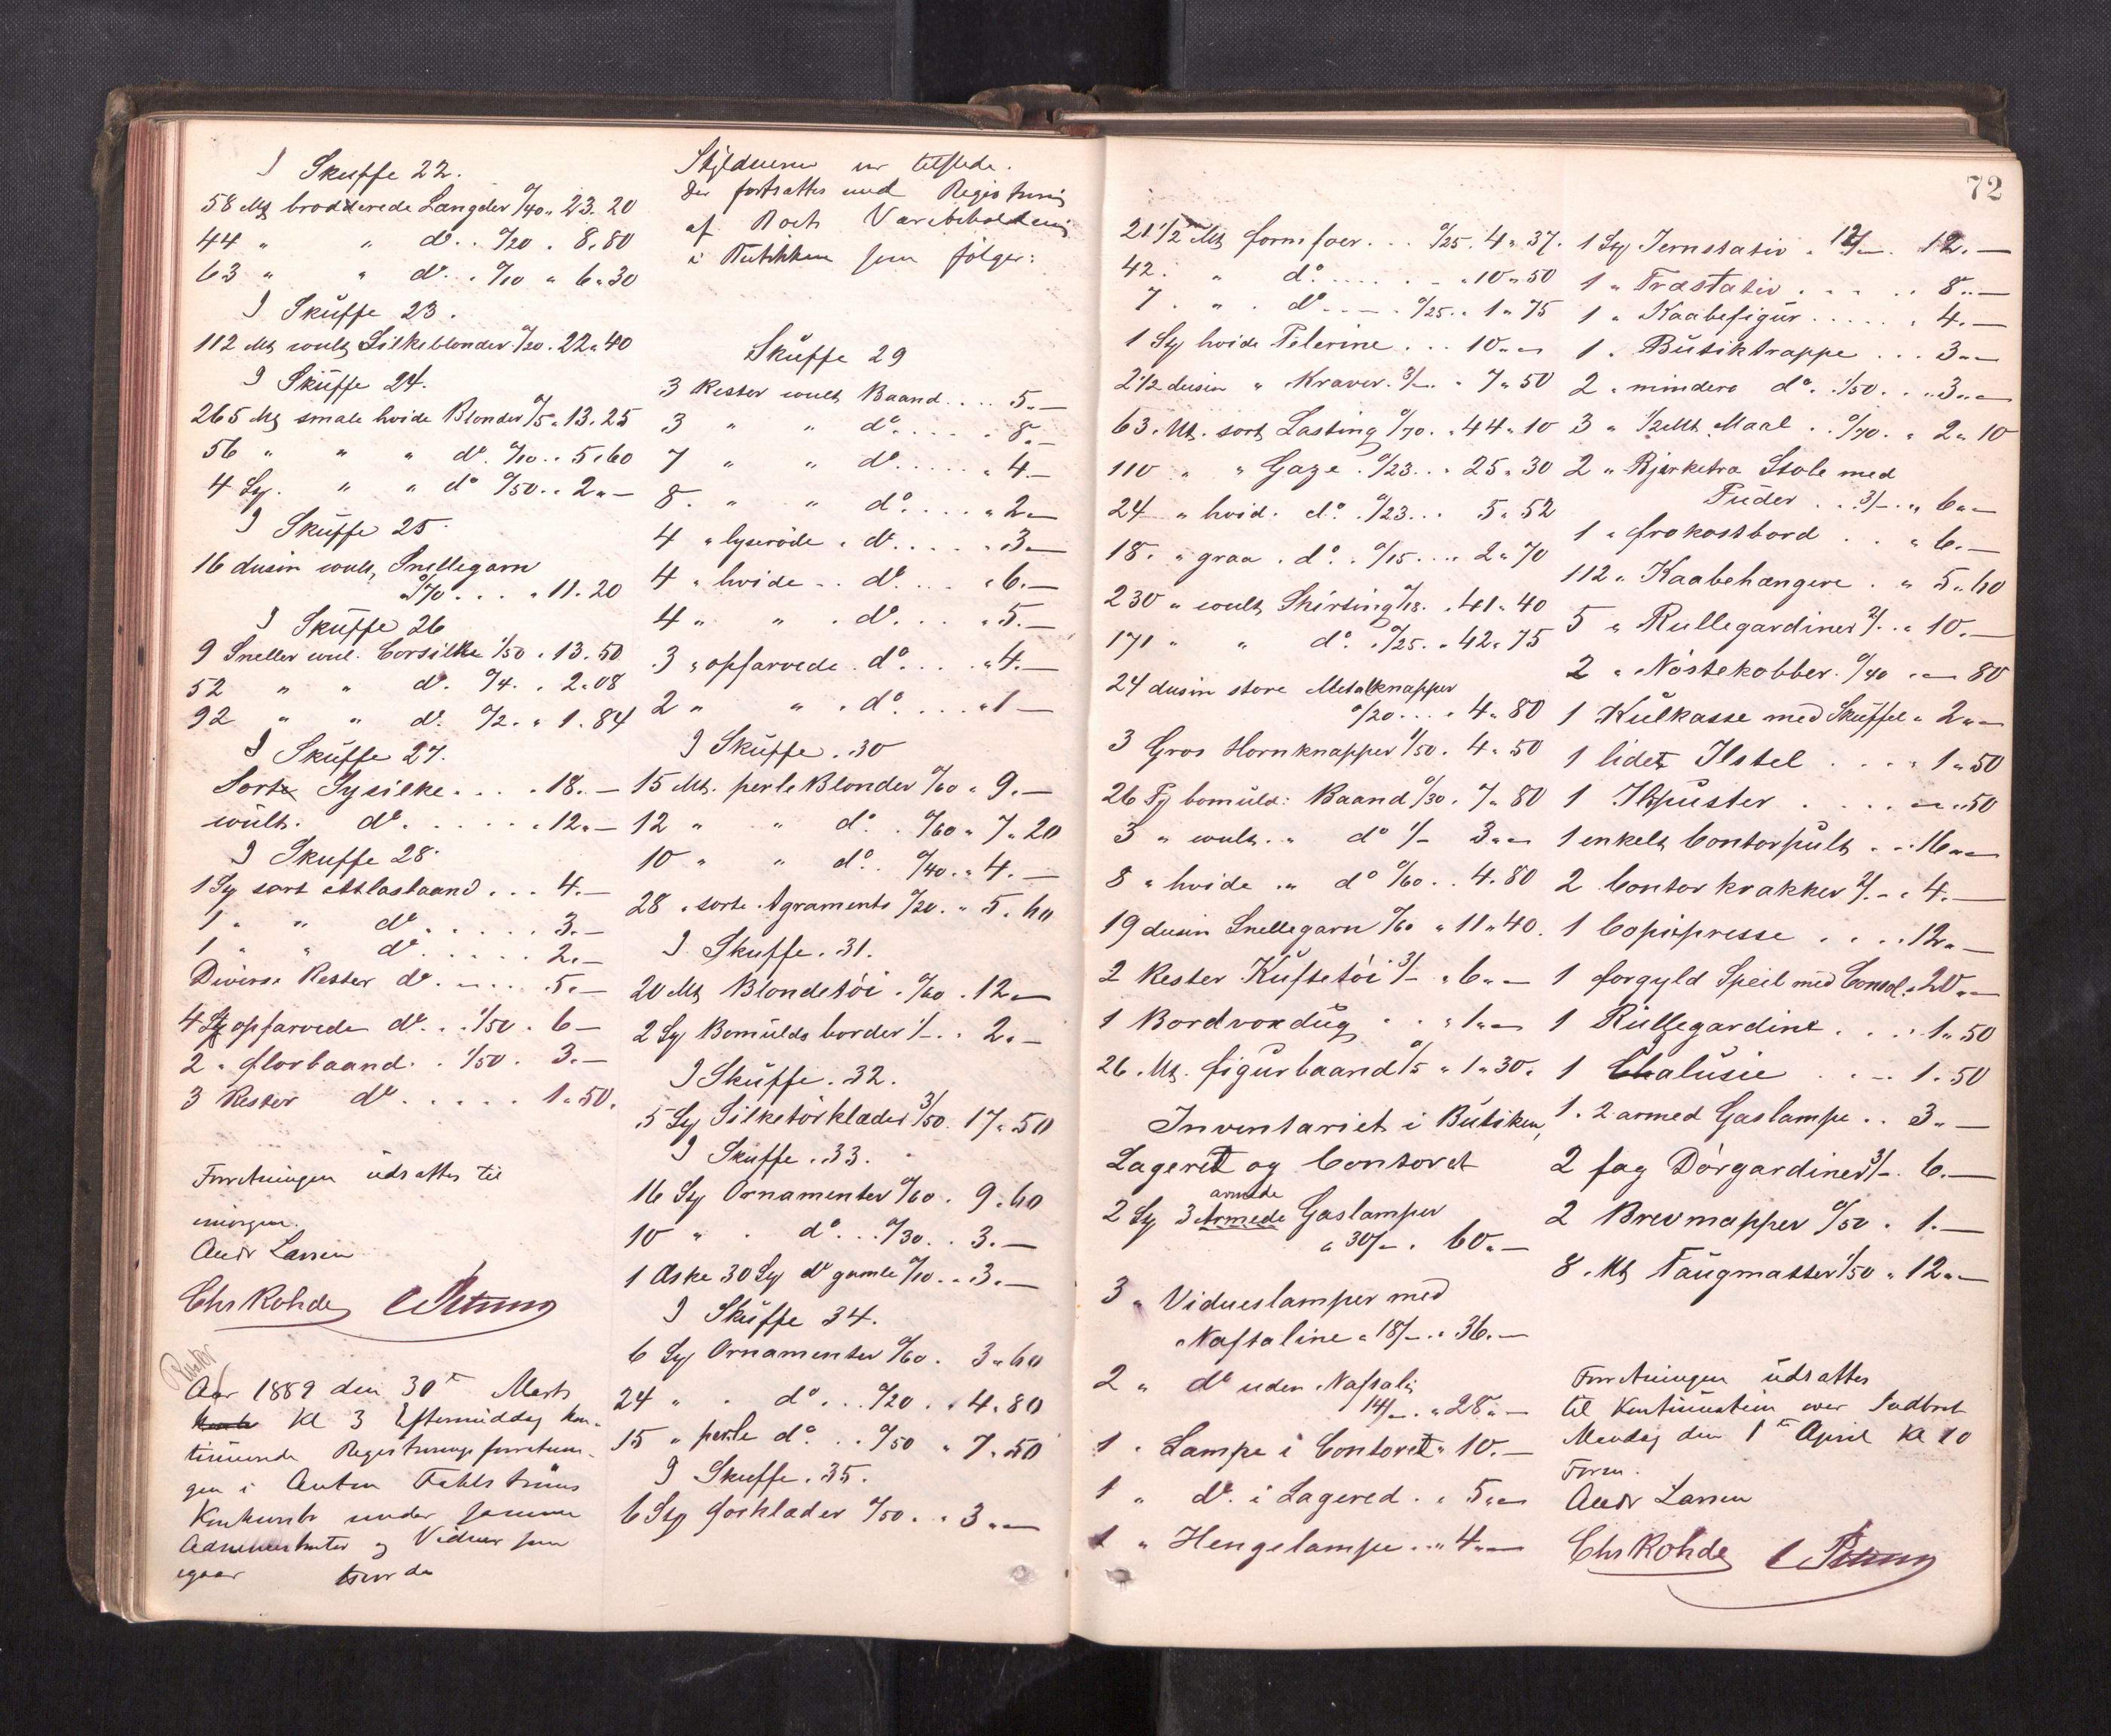 I Skuffe 22.
58 Mt broderede Længder 0/40 " 23.20
44 " " do. . 0/20 . 8.80
63 " " do. . 0/10 " 6"30
I Skuffe 23.
112 Mt coult Silkeblonder 0/20. 22"40
I Skuffe 24.
265 Mt smale hvide Blonder 0/5 " 13.25
56 " " " do. 0/10 . . 5.60
4 St. " " do 0/50 . . 2"—
I Skuffe 25.
16 dusin coult, Snellegarn
0/70 . . . " 11.20
I Skuffe 26
9 Sneller coul. Corsilke 1/50 . 13.50
52 " " do. 0/4. . 2.08
92 " " do. 0/2. " 1.84
I Skuffe 27.
Sort Sysilke . . . . 18.—
coult. do. . . . . . . 12"—
I Skuffe 28.
1 St sort Atlasbaand . . . 4.—
1 " " do . . . . . . 3.—
1 " " do . . . . . . 2.—
Diverse Rester do . . . . 5.—
4 St opfarvede do. . 1/50 . 6—
2 " Florbaand . . 1/50 . 3.—
3 Rester do . . . . . 1.50.
Forretningen udsattes til
imorgen.
Andr Larsen
Chr Rohde
Aar 1889 den 30te Marts
Kl 3 Eftermiddag kon-
tinuerede Registreringsforretnin-
gen i Anton Fahlstrøms
Konkursbo under samme
Administrator og Vidner som
igaar
Skyldneren var tilstede.
Der fortsattes med Registrering
af Boets Varebeholdning
i Butikken som følger:
Skuffe 29
3 Rester coult Baand . . . 5.—
3 " " do. . . . . 8.—
7 " " do. . . . . " 4.—
8. " " do. . . . " 2.—
4 " lyseröde " do. . . . . . 3.—
4 " hvide . . do. . . . " 6.—
4 " " . do. . . . " 5.—
3 " opfarvede . do. . . . " 4.—
2 " " " do. . . . " 1—
I Skuffe . 30
15 Mt. perle Blonder 0/60 " 9.—
12 " " do. . 0/60 " 7"20
10 " " do. . 0/40 . " 4.—
28 " sorte Agraments 0/20 . " 5.60
I Skuffe . 31.
20 Mt Blondetöi . 0/60 . 12.—
2 St Bomulds border 1/- . . 2.—
I Skuffe . 32.
5 St Silketörklæder 3/50 . 17.50
I Skuffe . 33.
16 St Ornamenter 0/60 . 9.60
10 " . do . . . 0/30 . . 3.—
1 Æske 30 St do gamle 0/10 . . 3.—
I Skuffe 34.
6 St Ornamenter 0/60 . 3"60
24 " . do . . . 0/20 . . 4.80
15 " perle do. . . 0/50 " 7.50
I Skuffe . 35.
6 St Forklæder 0/50 . . 3"—
72
21 1/2 Mt formfoer . . . 0/25 . 4"37.
42. " do . . . . . . " 10"50
7. " . do . . . . 0/25 . . 1"75
1 St hvide Pelerine . . . 10"—
2 1/2 dusin " Kraver . 3/- . " 7"50
63. Mt. sort Lasting 0/70 . " 44"10
110 " " Gaze . 0/23 . . . 25"30
24 " hvid. do . 0/23 . . . 5"52
18. " graa . do . . 0/15 . . . . 2"70
230 " coult Shirting 0/18 . . 41"40
171 " " do . . 0/25 . . 42"75
24 dusin store Metalknapper
0/20 . . . . 4"80
3 Gros Hornknapper 1/50 . 4"50
26 St bomuld: Baand 0/30 . 7"80
3 " coult . " do 1/- 3"—
8 " hvide . " do 0/60 . . 4.80
19 dusin Snellegarn 0/60 " 11"40.
2 Rester Kuftetöi 3/- " 6"—
1 Bordvoxdug . . " 1"—
26. Mt. Figurbaand 0/5 " 1"30.
Inventariet i Butiken,
Lageret og Contoret
2 St 3 armede Gaslamper
a 30/- . 60.—
3 " Vidueslamper med
Naftaline " 18/- . " 36.—
2 " do uden Naftali
14/- . " 28"—
1 " Lampe i Contoret " 10.—
1 " do. i Lagered . " 5"—
1 " Hengelampe . . " 4"—
1 St Jernstativ . 12/- . 12.—
1 " Træstativ . . . . . . 8"—
1 " Kaabefigur . . . . . " 4.—
1 . Butiktrappe . . . 3"—
2 " mindere do . . 1/50 . . . 3"—
3 " 1/2 Mt Maal . . 0/70 . " 2"10
2 " Bjerketræ Stole med
Puder . . 3/- . " 6"—
1 " Frokostbord . . " 6.—
112 " Kaabehængere . " 5"60
5 " Rullegardiner 2/- . " 10.—
2 " Nöstekobber . 0/40 . — 80
1 Kulkasse med Skuffel " 2"—
1 lidet Ilstel . . . . 1"50
1 Ilpuster . . . . — " 50
1 enkelt Contorpult . . " 16"—
2 Contor krakker 2/- . " 4.—
1 Copipresse . . . . 12"—
1 Forgyld Speil med Consol . " 20"—
1 Rullegardine . . . . 1"50
1 Chalusie . . . . 1.50
1. 2 armed Gaslampe . . 3"—
2 fag Dörgardiner 3/- . 6.—
2 Brevmapper 0/50 . 1.—
8. Mt Taugmatter 1/50 . 12"—
Forretningen udsattes
til Kontinuation over Indbret
Mandag den 1te April Kl 10
Form.
Andr Larsen
Chr Rohde